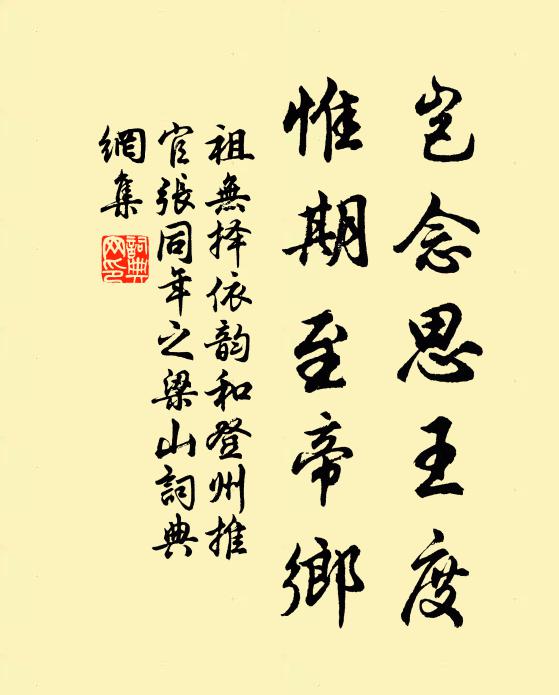 岂念思王度
惟期至帝鄉
祖無择依韵和登州推
官張同年之梁山詞典
網集
詞典
网印